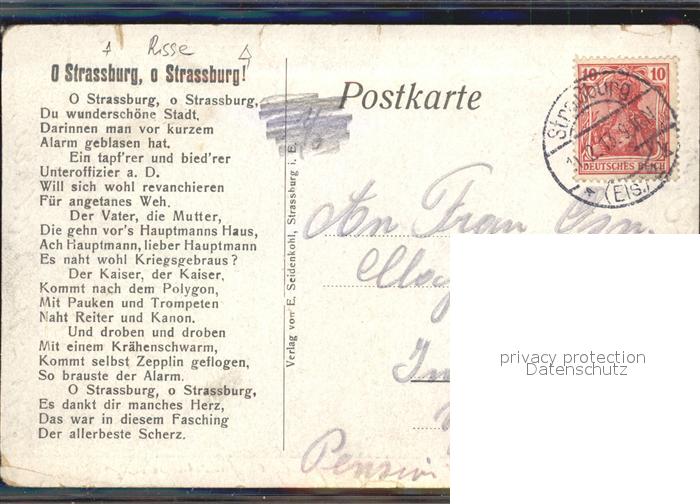 Risse
O Strassburg, o Strassburg!
O Strassburg, o Strassburg,
Du wunderschöne Stadt,
Darinnen man vor kurzem
Alarm geblasen hat.
Ein tapf'rer und bied'rer
Unteroffizier a. D.
Will sich wohl revanchieren
Für angetanes Weh.
Der Vater, die Mutter,
Die gehn vor's Hauptmanns Haus,
Ach Hauptmann, lieber Hauptmann
Es naht wohl Kriegsgebraus?
Der Kaiser, der Kaiser,
Kommt nach dem Polygon,
Mit Pauken und Trompeten
Naht Reiter und Kanon.
Und droben und droben
Mit einem Krähenschwarm,
Kommt selbst Zepplin geflogen,
So brauste der Alarm.
O Strassburg, o Strassburg,
Es dankt dir manches Herz,
Das war in diesem Fasching
Der allerbeste Scherz.
Verlag von E. Seidenkohl, Strassburg i. E.
Postkarte
10 10
DEUTSCHES REICH
Strassburg
* (Els.)
An Frau
Pension
privacy protection
Datenschutz